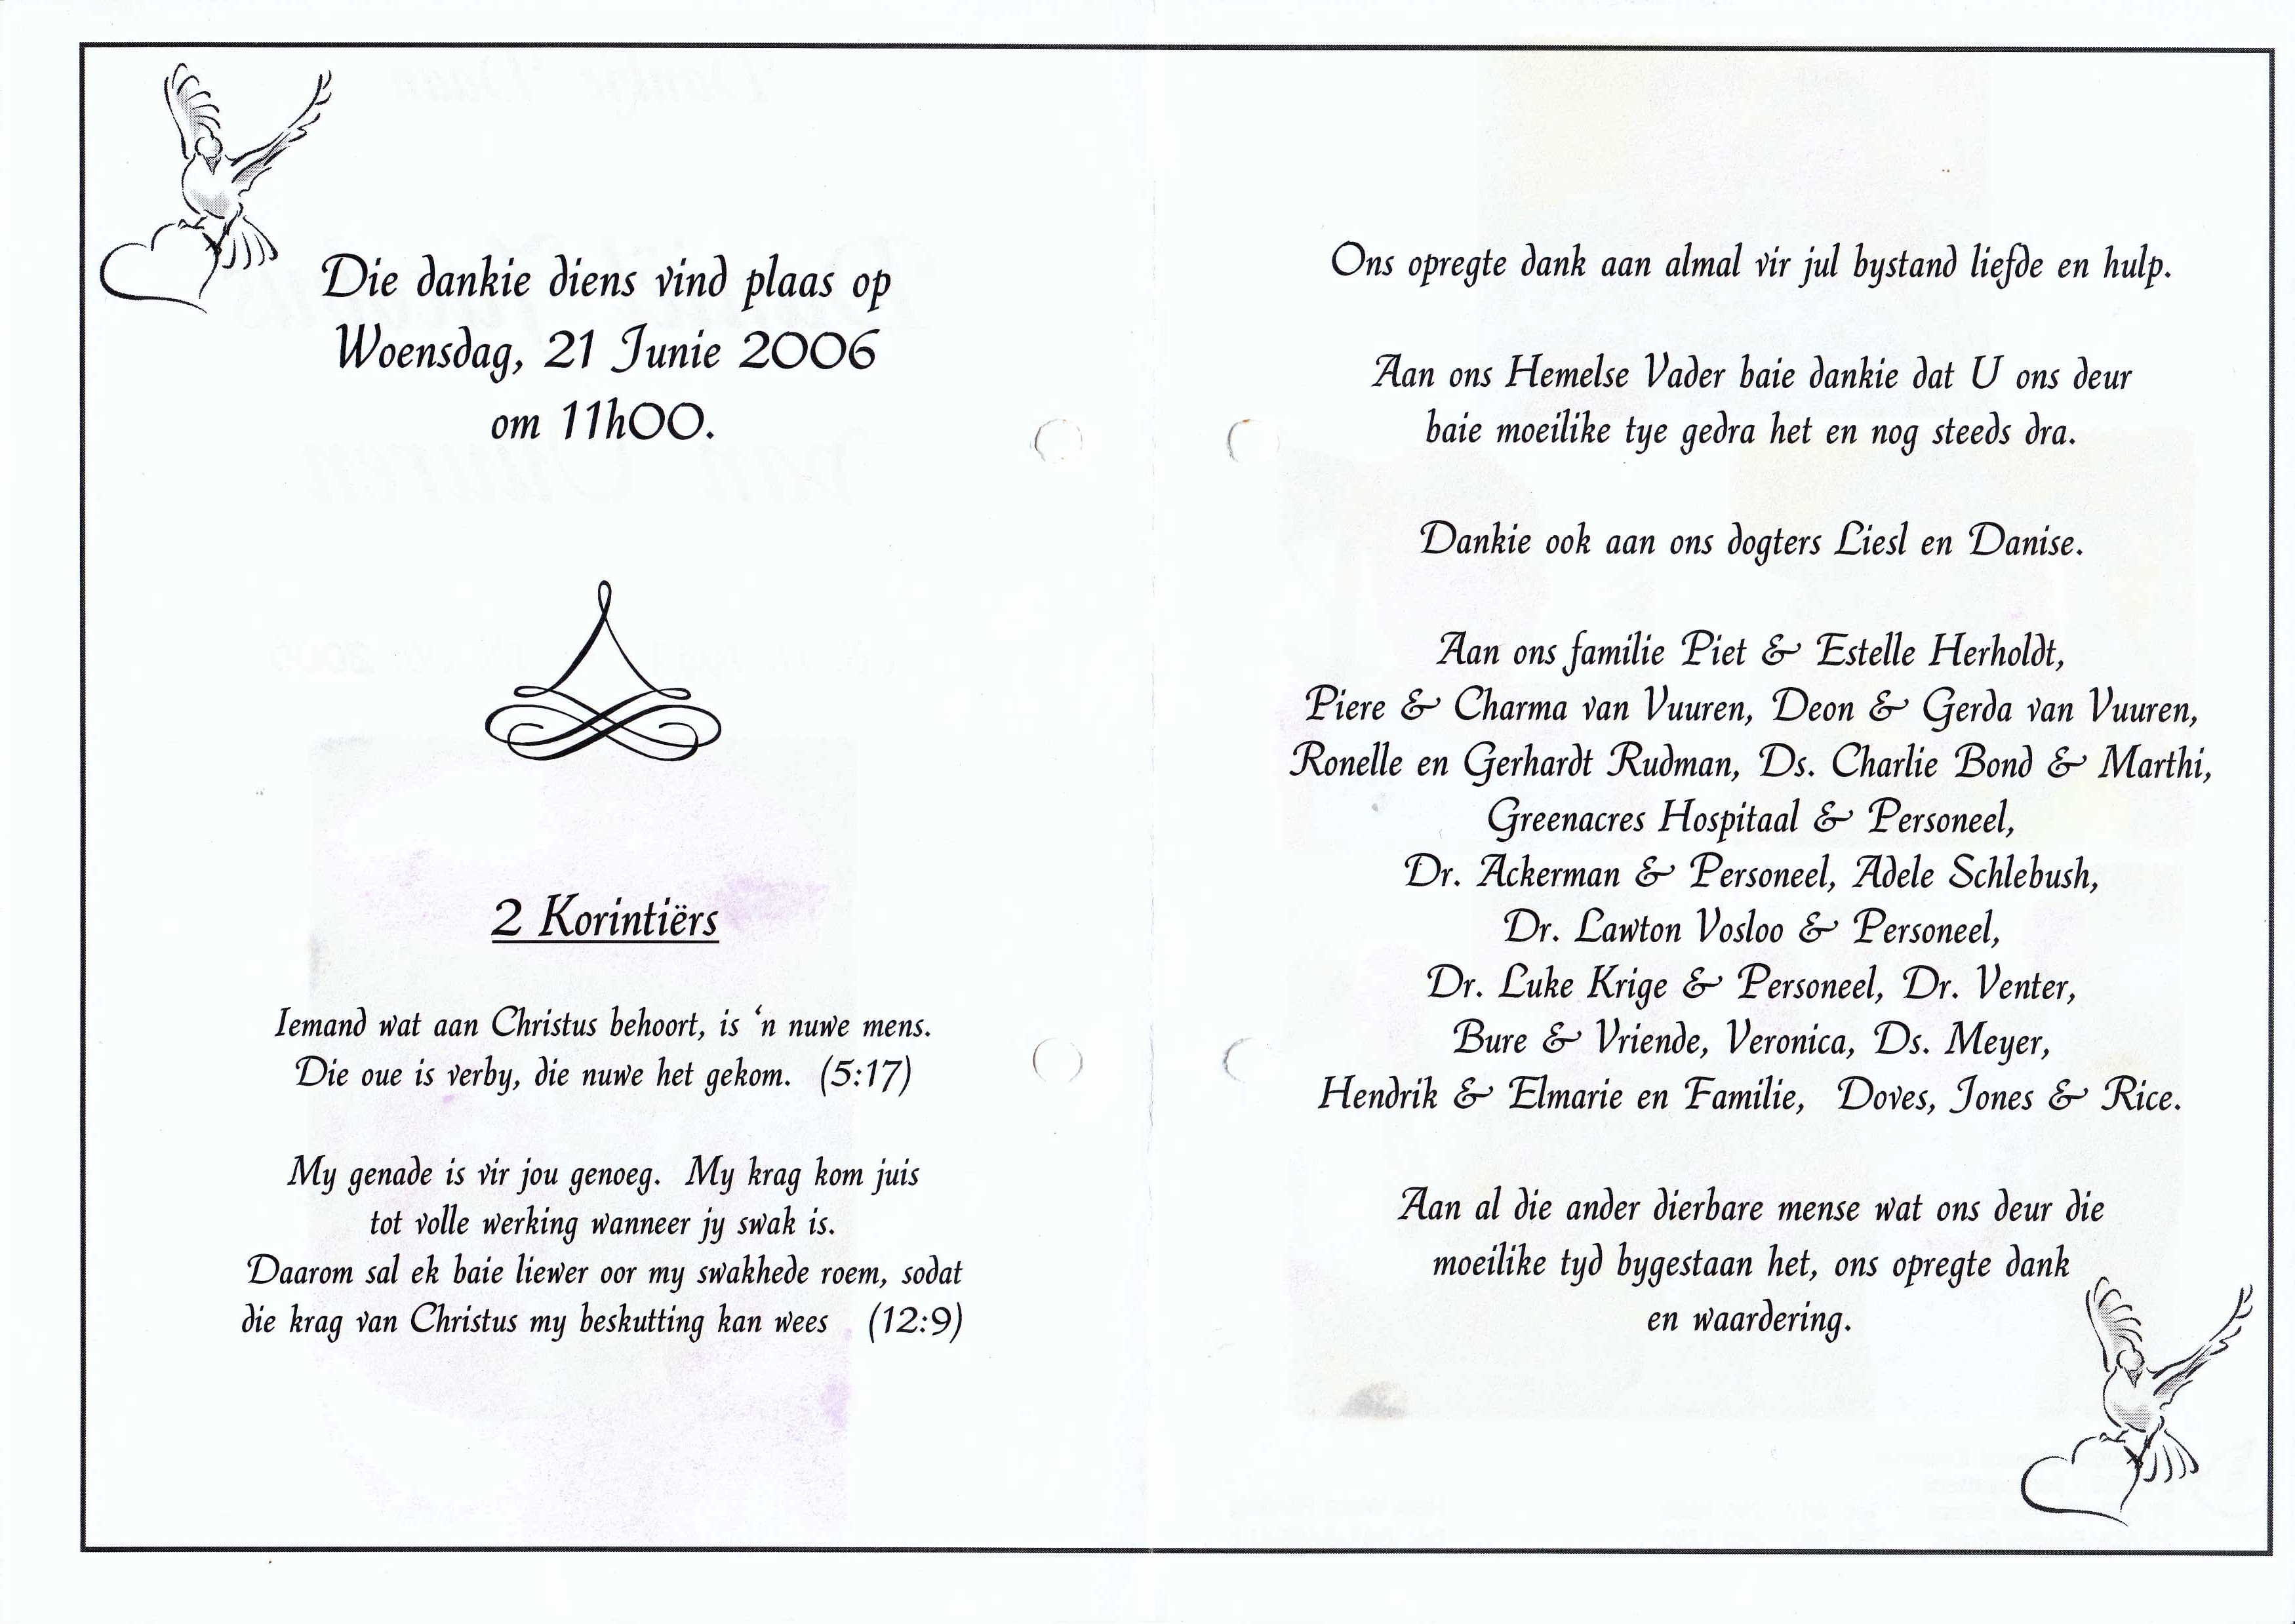 Die dankie diens vind plaas op
Woensdag, 21 Junie 2006
om 11h00.
2 Korintiërs
Iemand wat aan Christus behoort, is ‘n nuwe mens.
Die oue is verby, die nuwe het gekom. (5:17)
My genade is vir jou genoeg. My krag kom juis
tot volle werking wanneer jy swak is.
Daarom sal ek baie liewer oor my swakhede roem, sodat
die krag van Christus my beskutting kan wees (12:9)
Ons opregte dank aan almal vir jul bystand liefde en hulp.
Aan ons Hemelse Vader baie dankie dat U ons deur
baie moeilike tye gedra het en nog steeds dra.
Dankie ook aan ons dogters Liesl en Danise.
Aan ons familie Piet & Estelle Herholdt,
Piere & Charma van Vuuren, Deon & Gerda van Vuuren,
Ronelle en Gerhardt Rudman, Ds. Charlie Bond & Marthi,
Greenacres Hospitaal & Personeel,
Dr. Ackerman & Personeel, Adele Schlebush,
Dr. Lawton Vosloo & Personeel,
Dr. Luke Krige & Personeel, Dr. Venter,
Bure & Vriende, Veronica, Ds. Meyer,
Hendrik & Elmarie en Familie, Doves, Jones & Rice.
Aan al die ander dierbare mense wat ons deur die
moeilike tyd bygestaan het, ons opregte dank
en waardering.